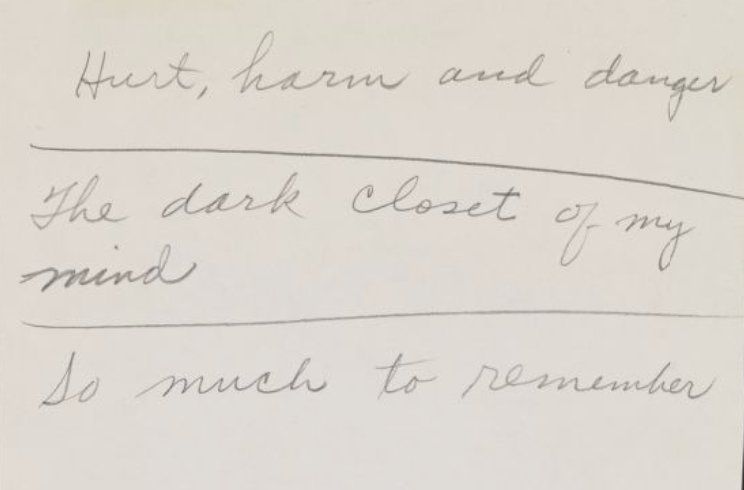 Hurt, harm and danger
The dark closet of my
mind
So much to remember